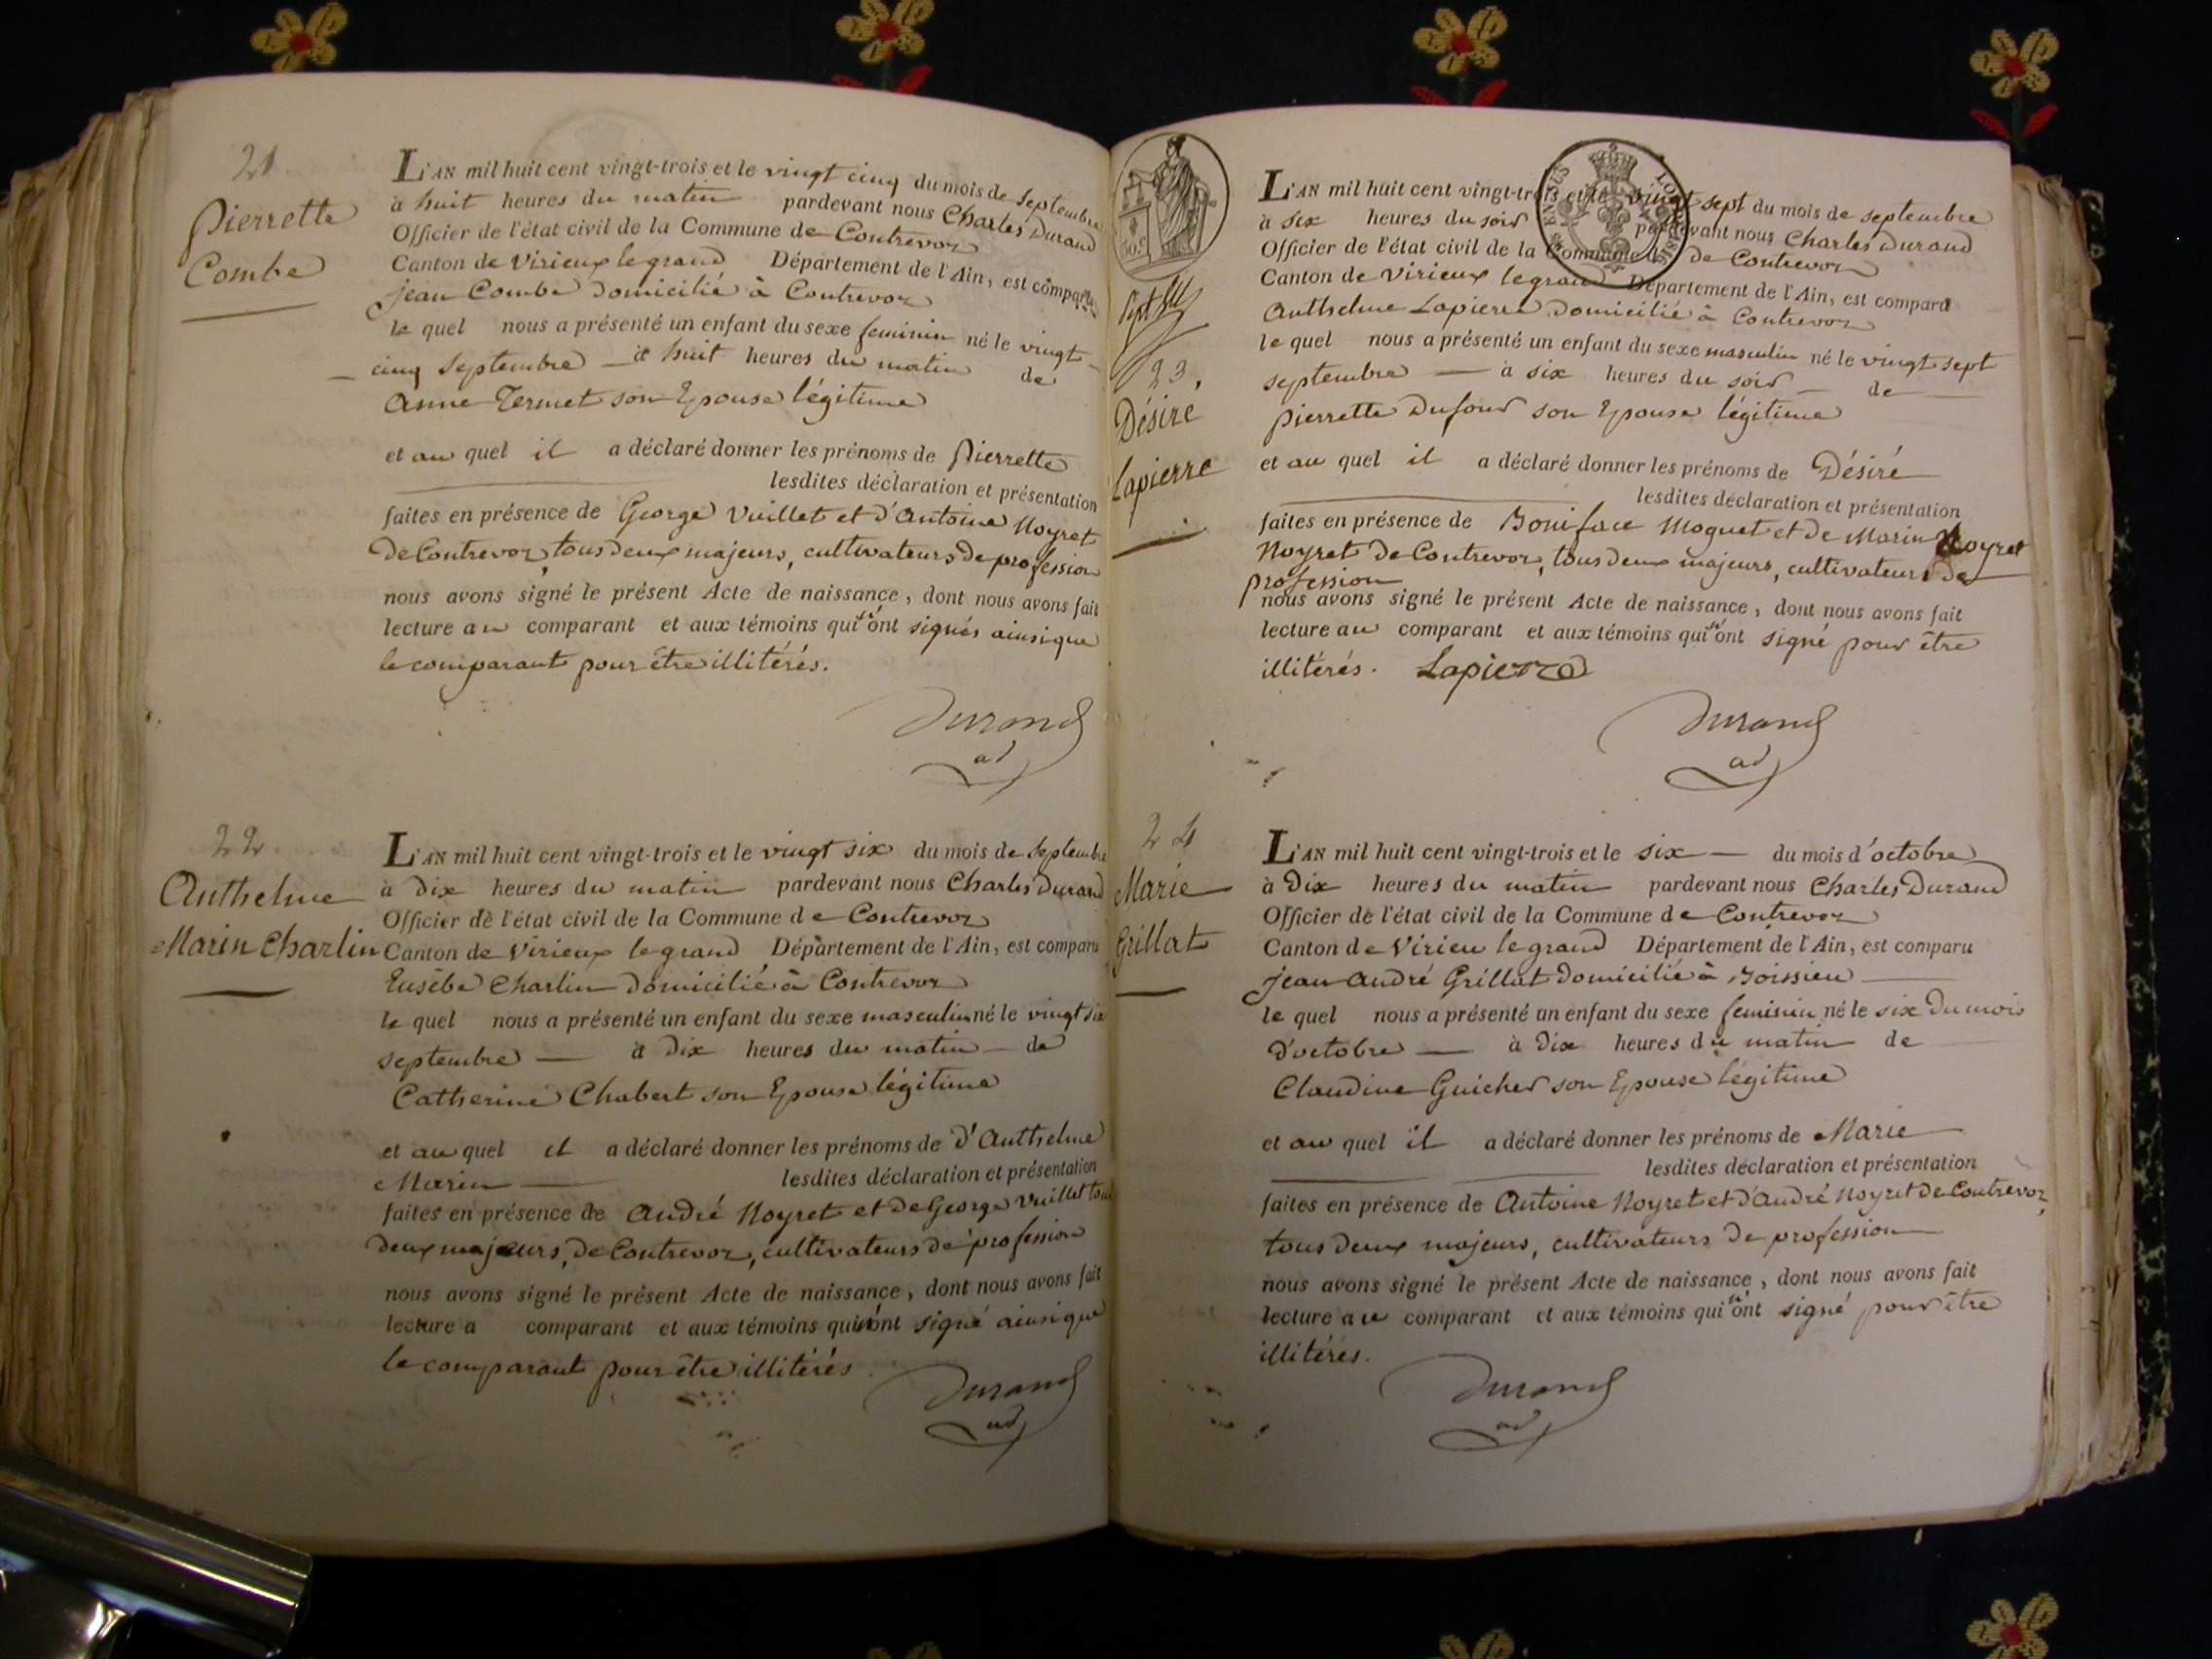 21.
Pierrette
Combe
L'AN mil huit cent vingt-trois et le vingt cinq du mois de Septembre
à huit heures du matin pardevant nous Charles Durand
Officier de l'état civil de la Commune de Contrevoz
Canton de Virieux legrand Département de l'Ain, est comparu
Jean Combe domicilié à Contrevoz
le quel nous a présenté un enfant du sexe feminin né le vingt
cinq Septembre à huit heures du matin de
Anne Termet son Epouse légitime
et au quel il a déclaré donner les prénoms de Pierrette
lesdites déclaration et présentation
faites en présence de George Vuillet et d'Antoine Noyret
De Contrevoz, tous deux majeurs, cultivateurs de profession
nous avons signé le présent Acte de naissance, dont nous avons fait
lecture au comparant et aux témoins qui n'ont signés ainsique
le comparant pour être illitérés.
Durand
ad
22
Anthelme
Marin Charlin
L'AN mil huit cent vingt-trois et le vingt six du mois de Septembre
à dix heures du matin pardevant nous Charles Durand
Officier de l'état civil de la Commune de Contrevoz
Canton de Virieux legrand Département de l'Ain, est comparu
Eusèbe Charlin domicilié à Contrevoz
le quel nous a présenté un enfant du sexe masculin né le vingt six
septembre à dix heures du matin de
Catherine Chabert son Epouse légitime
et au quel il a déclaré donner les prénoms de d'Anthelme
Marin lesdites déclaration et présentation
faites en présence de André Noyret et de George Vuillet tous
deux majeurs, de Contrevoz, cultivateurs de profession
nous avons signé le présent Acte de naissance, dont nous avons fait
lecture a comparant et aux témoins qui n'ont signé ainsique
le comparant pour être illitérés
Durand
ad
50 c.
23.
Désiré
Lapierre
L'AN mil huit cent vingt-trois et le vingt sept du mois de septembre
à six heures du soir pardevant nous Charles Durand
Officier de l'état civil de la Commune de Contrevoz
Canton de Virieux legrand Département de l'Ain, est comparu
Anthelme Lapierre domicilié à Contrevoz
le quel nous a présenté un enfant du sexe masculin né le vingt sept
septembre à six heures du soir de
Pierrette Dufour son Epouse légitime
et au quel il a déclaré donner les prénoms de Désiré
lesdites déclaration et présentation
faites en présence de Boniface Moguet et de Marin Noyret
Noyret De Contrevoz, tous deux majeurs, cultivateurs de
profession
nous avons signé le présent Acte de naissance, dont nous avons fait
lecture au comparant et aux témoins qui n'ont signé pour être
illitérés. Lapierre
Durand
ad
24
Marie
Grillat
L'AN mil huit cent vingt-trois et le six du mois d'octobre
à dix heures du matin pardevant nous Charles Durand
Officier de l'état civil de la Commune de Contrevoz
Canton de Virieu legrand Département de l'Ain, est comparu
Jean André Grillat domicilié à Boissieu
le quel nous a présenté un enfant du sexe feminin né le six du mois
d'octobre à dix heures du matin de
Claudine Guicher son Epouse légitime
et au quel il a déclaré donner les prénoms de Marie
lesdites déclaration et présentation
faites en présence de Antoine Noyret et d'André Noyret de Contrevoz,
tous deux majeurs, cultivateurs de profession
nous avons signé le présent Acte de naissance, dont nous avons fait
lecture au comparant et aux témoins qui n'ont signé pour être
illitérés.
Durand
ad